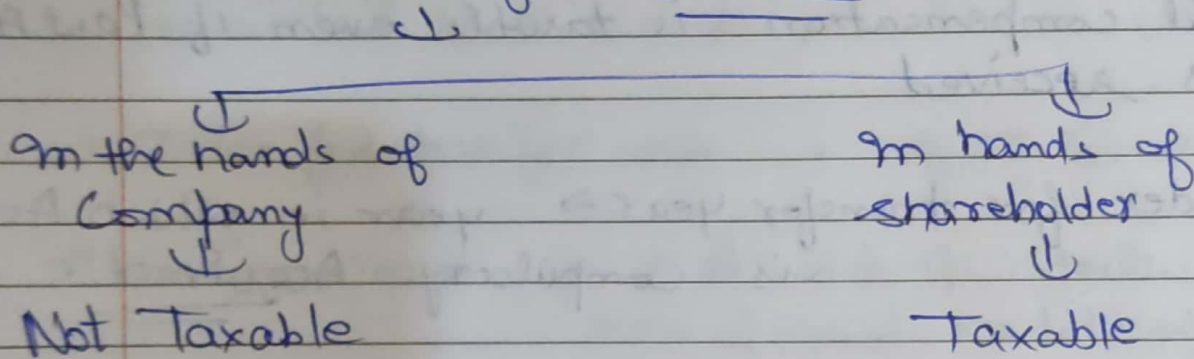 In the hands of
Company
Not Taxable
In hands of
shareholder
Taxable